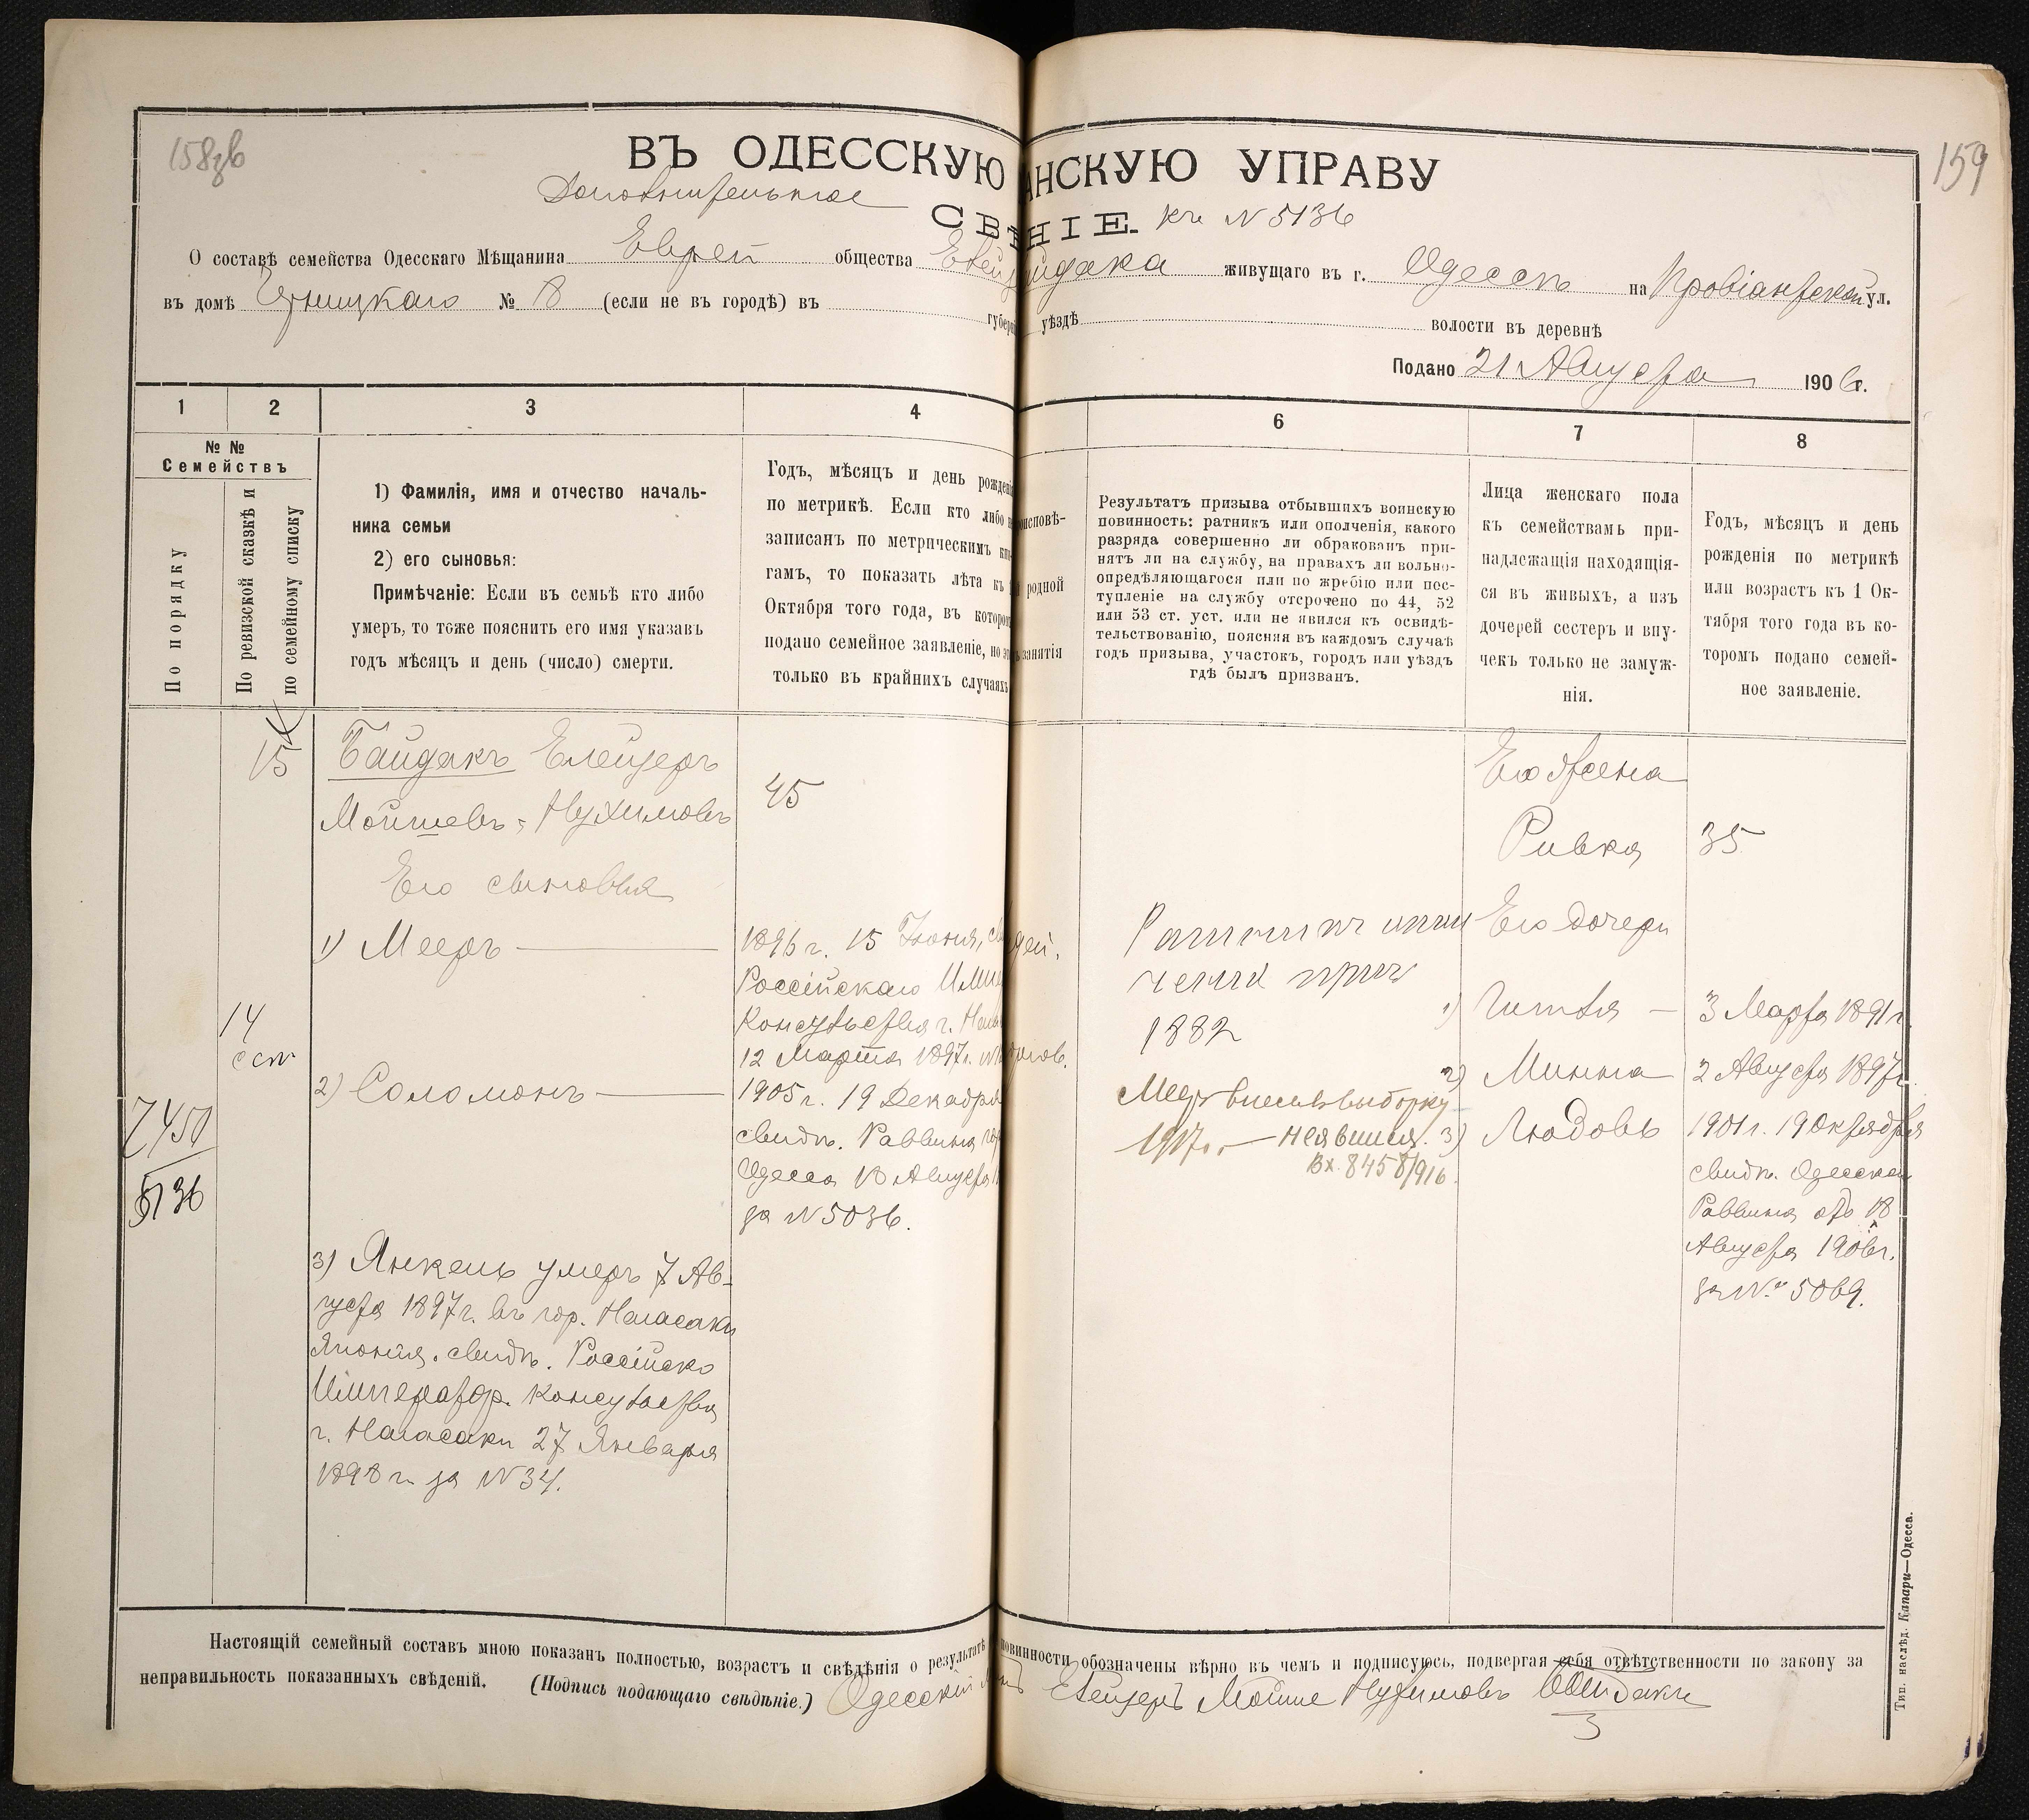 158зв
159
ВЪ ОДЕССКУЮ АНСКУЮ УПРАВУ
Дополнительное СВѢНІЕ. къ № 5136
О составѣ семейства Одесскаго Мѣщанина Еврей общества живущаго въ г. Одессѣ на Провіантской ул.
въ домѣ № 8 (если не въ городѣ) въ губерні уѣздѣ волости въ деревнѣ
Подано 21 Августа 1906 г.
1 2 3 4 6 7 8
№ №
Семействъ
По порядку
По ревизской сказкѣ и
по семейному списку
1) Фамилія, имя и отчество началь-
ника семьи
2) его сыновья:
Примѣчаніе: Если въ семьѣ кто либо
умеръ, то тоже пояснить его имя указавъ
годъ мѣсяцъ и день (число) смерти.
Годъ, мѣсяцъ и день рожденія
по метрикѣ. Если кто либо не
записанъ по метрическимъ кни-
гамъ, то показать лѣта къ 1
Октября того года, въ которомъ
подано семейное заявленіе, но это
только въ крайнихъ случаяхъ
оисповѣ-
родной
занятія
Результатъ призыва отбывшихъ воинскую
повинность: ратникъ или ополченія, какого
разряда совершенно ли обракованъ при-
нятъ ли на службу, на правахъ ли вольно-
опредѣляющагося или по жребію или пос-
тупленіе на службу отсрочено по 44, 52
или 53 ст. уст. или не явился къ освидѣ-
тельствованію, поясняя въ каждомъ случаѣ
годъ призыва, участокъ, городъ или уѣздъ
гдѣ былъ призванъ.
Лица женскаго пола
къ семействамъ при-
надлежащія находящія-
ся въ живыхъ, а изъ
дочерей сестеръ и вну-
чекъ только не замуж-
нія.
Годъ, мѣсяцъ и день
рожденія по метрикѣ
или возрастъ къ 1 Ок-
тября того года въ ко-
торомъ подано семей-
ное заявленіе.
15
14
7450
5136
Байдакъ Елейзеръ
Мойшевъ-Нухимовъ
Его сыновья
1) Мееръ
2) Соломонъ
3) Янкель умеръ 7 Ав-
густа 1897 г. въ гор. Нагасаки
Японія. свидѣ. Россійско
Император. Консульства
г. Нагасаки 27 Января
1898 г. за № 34.
45
1896 г. 15 Іюня, св дей.
Россійскаго Имп
Консульства г. Нага
12 Марта 1897 г. №
1905 г. 19 Декабря
свидѣ. Раввина гор
Одесса 18 Августа
за № 5036.
Ратникъ опол
ченія приз
1882
Мееръ внесенъ въ выборку
1917 г. — неявился.
Вх. 8458/916.
Его Жена
Ривка
Его дочери
1) Гитля
2) Минна
3) Людовь
35
3 Марта 1891 г.
2 Августа 1897 г.
1901 г. 19 Октября
свидѣ. Одесскаго
Раввина отъ 18
Августа 1906 г.
за № 5069.
Настоящій семейный составъ мною показанъ полностью, возрастъ и свѣдѣнія о результатѣ повинности обозначены вѣрно въ чемъ и подписуюсь, подвергая себя отвѣтственности по закону за
неправильность показанныхъ свѣденій. (Подпись подающаго свѣдѣніе.) Одесскій Елейзеръ Мойше Нухимовъ Байдакъ
Тип. наслѣд. Клпари—Одесса.